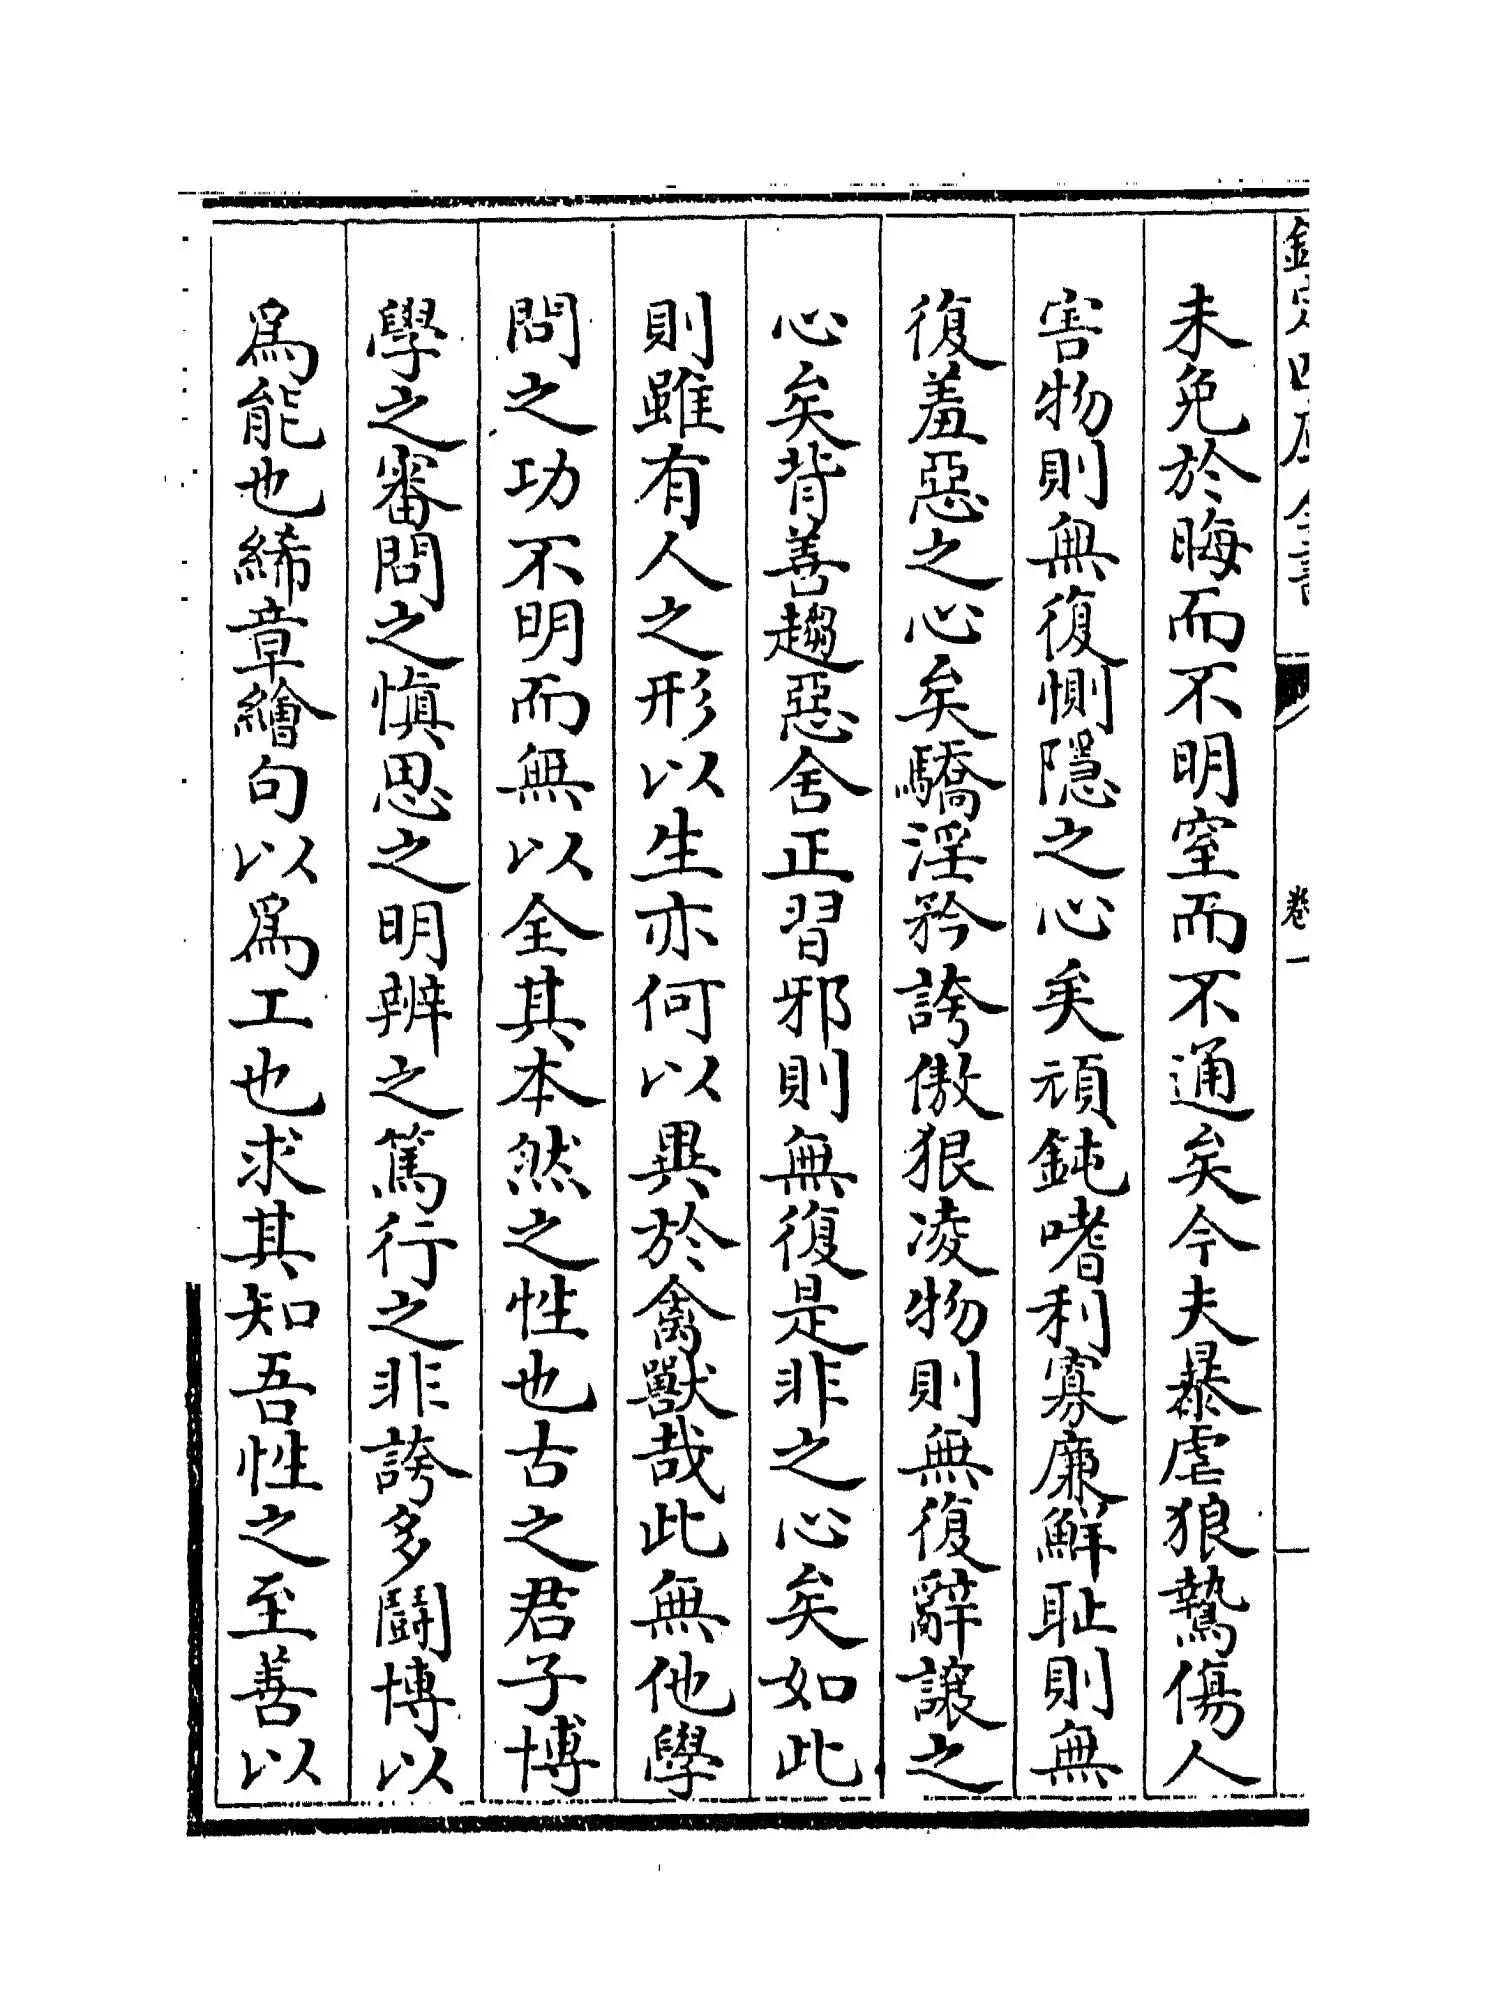 欽定四庫全書
卷一
未免於晦而不明窒而不通矣今夫暴虐狼鷙傷人
害物則無復惻隠之心矣頑鈍嗜利寡廉鮮耻則無
復羞惡之心矣驕淫矜誇傲狠凌物則無復辭譲之
心矣背善趨惡舍正習邪則無復是非之心矣如此
則雖有人之形以生亦何以異於禽獸哉此無他學
問之功不明而無以全其本然之性也古之君子博
學之審問之愼思之明辨之篤行之非誇多鬭博以
為能也絺章繪句以為工也求其知吾性之至善以